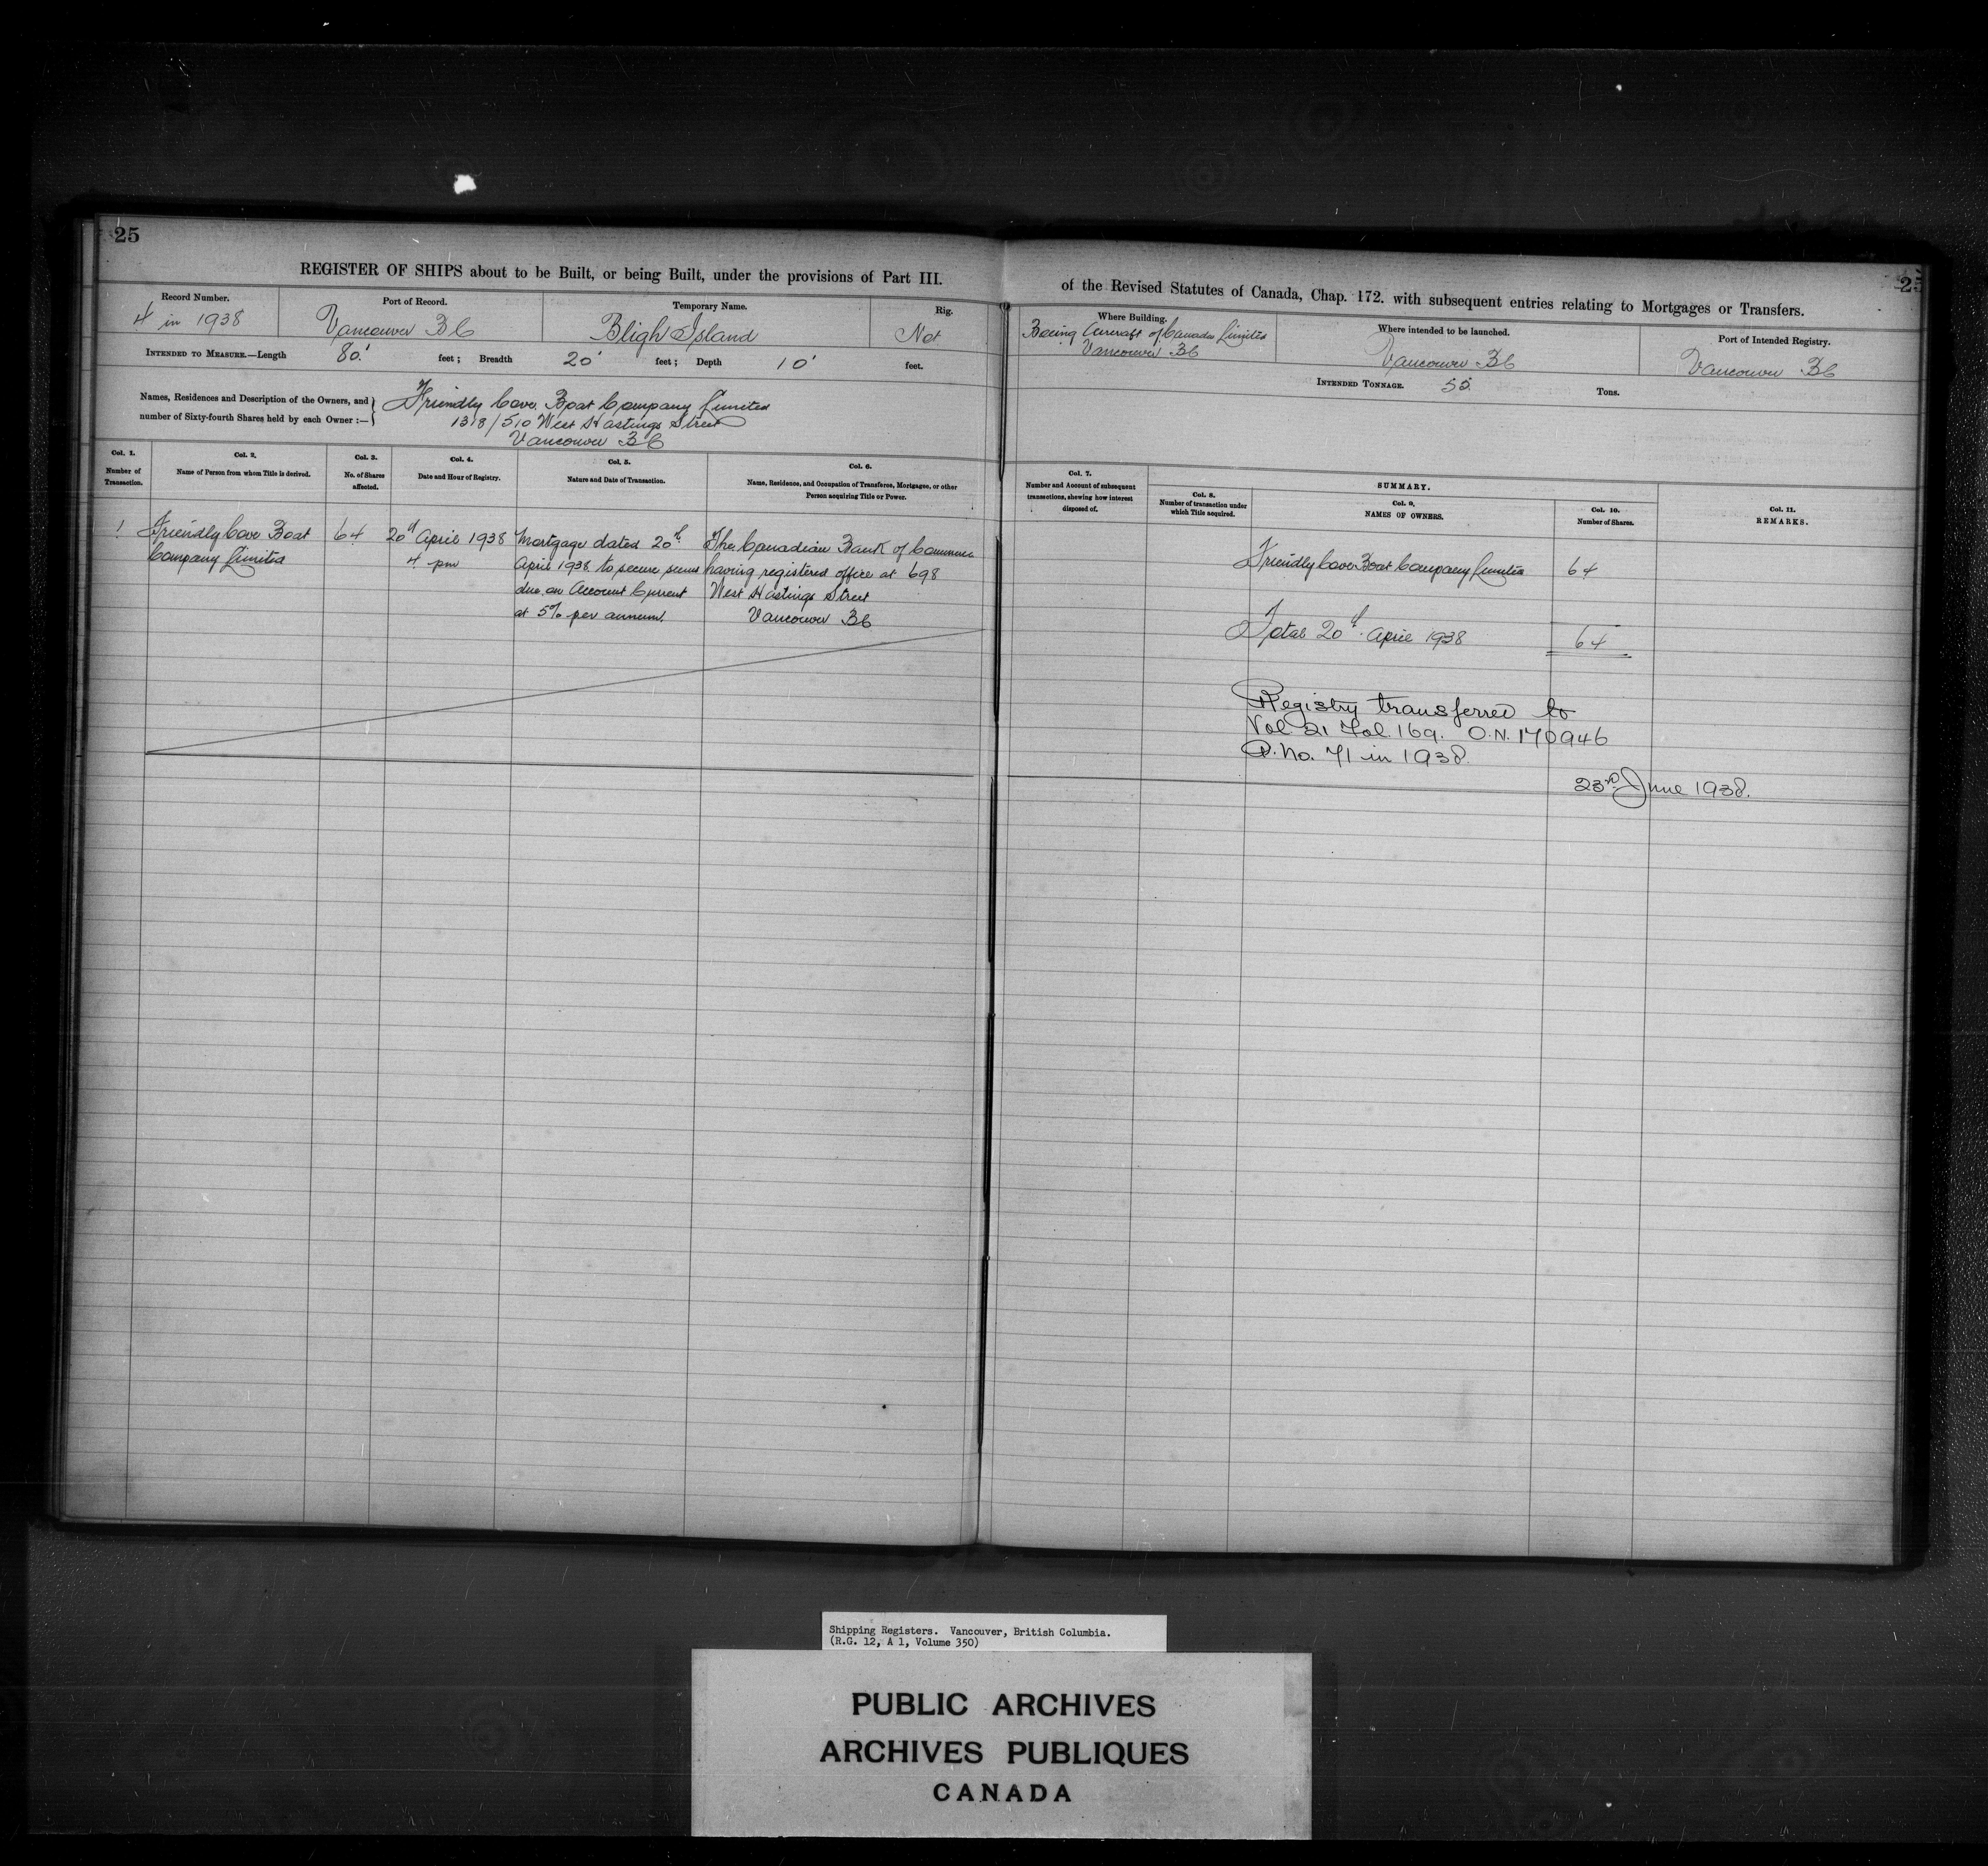 25
25
REGISTER OF SHIPS about to be Built, or being Built, under the provisions of Part III.
of the Revised Statutes of Canada, Chap. 172. with subsequent entries relating to Mortgages or Transfers.
Record Number.
4 in 1938
Port of Record.
Vancouver BC
Temporary Name.
Bligh Island
Rig.
Not
Where Building.
Boeing Aircraft of Canada Limited
Vancouver BC
Where intended to be launched.
Vancouver BC
Port of Intended Registry.
Vancouver BC
INTENDED TO MEASURE.—Length 80' feet; Breadth 20' feet; Depth 10' feet.
INTENDED TONNAGE. 55 Tons.
Names, Residences and Description of the Owners, and
number of Sixty-fourth Shares held by each Owner :—
Friendly Cove Boat Company Limited
1318/510 West Hastings Street
Vancouver BC
Col. 1.
Number of
Transaction.
Col. 2.
Name of Person from whom Title is derived.
Col. 3.
No. of Shares
affected.
Col. 4.
Date and Hour of Registry.
Col. 5.
Nature and Date of Transaction.
Col. 6.
Name, Residence, and Occupation of Transferee, Mortgagee, or other
Person acquiring Title or Power.
Col. 7.
Number and Account of subsequent
transactions, shewing how interest
disposed of.
SUMMARY.
Col. 8.
Number of transaction under
which Title acquired.
Col. 9.
NAMES OF OWNERS.
Col. 10.
Number of Shares.
Col. 11.
REMARKS.
1
Friendly Cove Boat
Company Limited
64
20th April 1938
4 pm
Mortgage dated 20th
April 1938 to secure sums
due on Account Current
at 5% per annum.
The Canadian Bank of Commerce
having registered office at 698
West Hastings Street
Vancouver BC
Friendly Cove Boat Company Limited 64
Total 20th April 1938 64
Registry transferred to
Vol 21 Fol. 169. O.N. 170946
P. No. 71 in 1938.
23rd June 1938.
Shipping Registers. Vancouver, British Columbia.
(R.G. 12, A 1, Volume 350)
PUBLIC ARCHIVES
ARCHIVES PUBLIQUES
CANADA